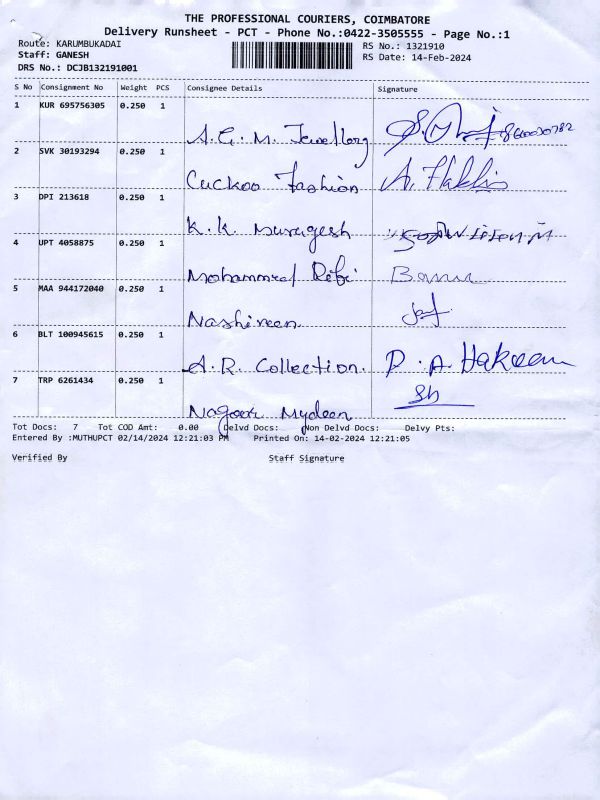 THE PROFESSIONAL COURIERS, COIMBATORE
Delivery Runsheet - PCT - Phone No.:0422-3505555 - Page No.:1
Route: KARUMBUKADAI RS No.: 1321910
Staff: GANESH RS Date: 14-Feb-2024
DRS No.: DCJB132191001
S No Consignment No Weight PCS Consignee Details Signature
1 KUR 695756305 0.250 1
A.G.M. Jewellery
2 SVK 30193294 0.250 1
Cuckoo Fashion
3 DPI 213618 0.250 1
K.K. Murugesh
4 UPT 4058875 0.250 1
Mohammed Rafi Banu
5 MAA 944172040 0.250 1
Nashireen
6 BLT 100945615 0.250 1
A.R. Collection. P.A. Hakeem
7 TRP 6261434 0.250 1
Nagoor Mydeen
Tot Docs: 7 Tot COD Amt: 0.00 Delvd Docs: Non Delvd Docs: Delvy Pts:
Entered By :MUTHUPCT 02/14/2024 12:21:03 PM Printed On: 14-02-2024 12:21:05
Verified By Staff Signature